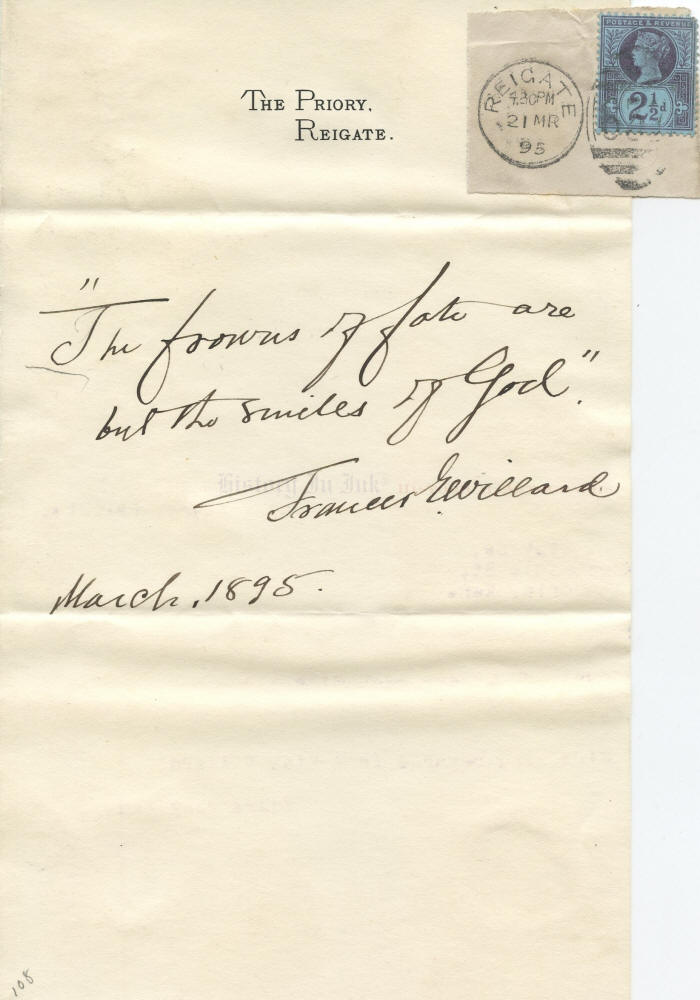 THE PRIORY,
REIGATE.
POSTAGE & REVENUE
2½d
REIGATE
4.30PM
21 MR
95
"The frowns of fate are
but the smiles of God".
Frances E. Willard.
March, 1895.
History In Ink
108